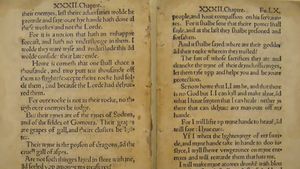 XXXII. Chapter.
their enemies, lest their aduersaries wolde be
proude and saye oure hye hande hath done al
these workes and not the Lorde.
For it is a nacion that hath an vnhappye
forcast, and hath no vnderstonge in them. I
wolde they were wyse and vnderstode this ād
wolde consider their later ende.
Howe it cometh that one shall chace a
thousande, and two put ten thousande off
them to flyghte? excepte their rocke had solde
them, and because the Lorde had delyuered
them.
For oure rocke is not as their rocke, no though
oure enemyes be iudge.
But their vynes are of the vynes of Sodom
and of the feldes of Gomorra. Their grapes
are grapes of gall, and their clusters be
Their wyne is the poyson of dragons, ād the
cruell gall of aspes.
Are not soch thinges layed in store with me,
ād seeled vpp amonge my treasures?
XXXII. Chapter. Fo. LX,
people, and haue compassion on his seruauntes.
For it shalbe sene that their power shall
fayle, and at the last they shalbe presoned and
forsaken.
And it shalbe sayed where are their goddes
ād their rocke wherein they trusted?
The fatt of whose sacrifices they ate and
dranke the wyne of their drinckofferynges,
let them ryse vpp and helpe you and be youre
protection.
Se now howe that I, I am he, and that there
is no God but I. I can kyll and make alyue, ād
what I haue smyten that I can heale: nether ys
there that can delyuer any man oute off my
honde.
For I will lifte vp myne hande to heauē, ād
will saye: I lyue euer.
Yf I whett the lyghtenynge of my swerde,
and myne hande take in hande to doo iustyce,
I will shewe vengeance on myne enemyes
and will rewarde them that hate me.
I will make myne arowes dronke with bloude